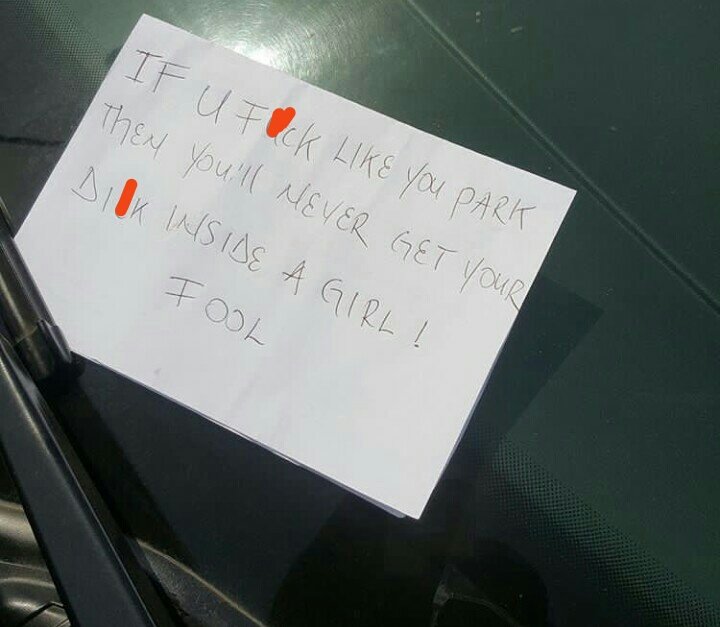 IF U F ck LIKE YOU PARK
THEN YOU'll NEVER GET YOUR
DI K INSIDE A GIRL !
FOOL